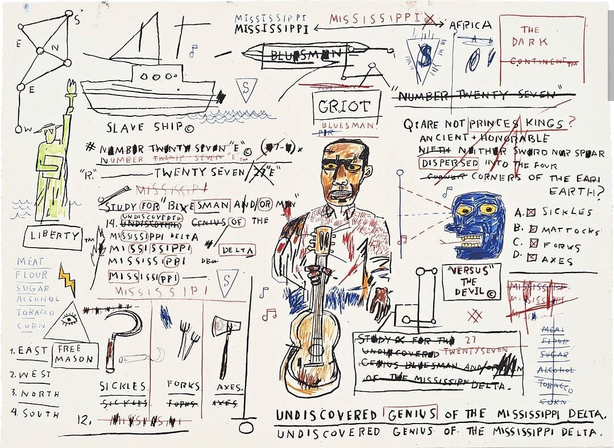 S
E
N
E
W
S
MISSISSIPPI
MISSISSIPPI
MISSISSIPPI
AFRICA
S
THE
DARK
CONTINENT
BLUESMAN
"NUMBER TWENTY SEVEN"
SLAVE SHIP©
S
GRIOT
BLUESMAN
# NUMBER TWENTY SEVEN "E"©
NUMBER TWENTY SEVEN "E"
"R." TWENTY SEVEN
MISSISSIPPI
STUDY FOR "BLUESMAN AND/OR MEN"
UNDISCOVERED
14. UNDISCOVERED GENIUS OF THE
MISSISSIPPI DELTA
MISSISSIPPI DELTA
MISSISSIPPI
MISSISSIPPI
MISSISSIPPI
S
LIBERTY™
MEAT
FLOUR
SUGAR
ALCOHOL
TOBACCO
CORN
FREE
MASON
1. EAST
2. WEST
3. NORTH
4. SOUTH
SICKLES
SICKLES
FORKS
FORKS
AXES.
AXES.
12.
Q: ARE NOT PRINCES KINGS?
ANCIENT + HONORABLE
NIETH NEITHER SWORD NOR SPEAR
DISPERSED INTO THE FOUR
CORNERS OF THE EARTH
EARTH?
A. SICKLES
B. MATTOCKS
C. FORKS
D. AXES
"VERSUS"
THE
DEVIL©
MISSISSIPPI
MISSISSIPPI
MEAT
FLOUR
SUGAR
ALCOHOL
TOBACCO
CORN
STUDY FOR THE 27
UNDISCOVERED TWENTY/SEVEN
GENIUS BLUESMAN AND/OR MEN
OF THE MISSISSIPPI DELTA.
UNDISCOVERED GENIUS OF THE MISSISSIPPI DELTA.
UNDISCOVERED GENIUS OF THE MISSISSIPPI DELTA.